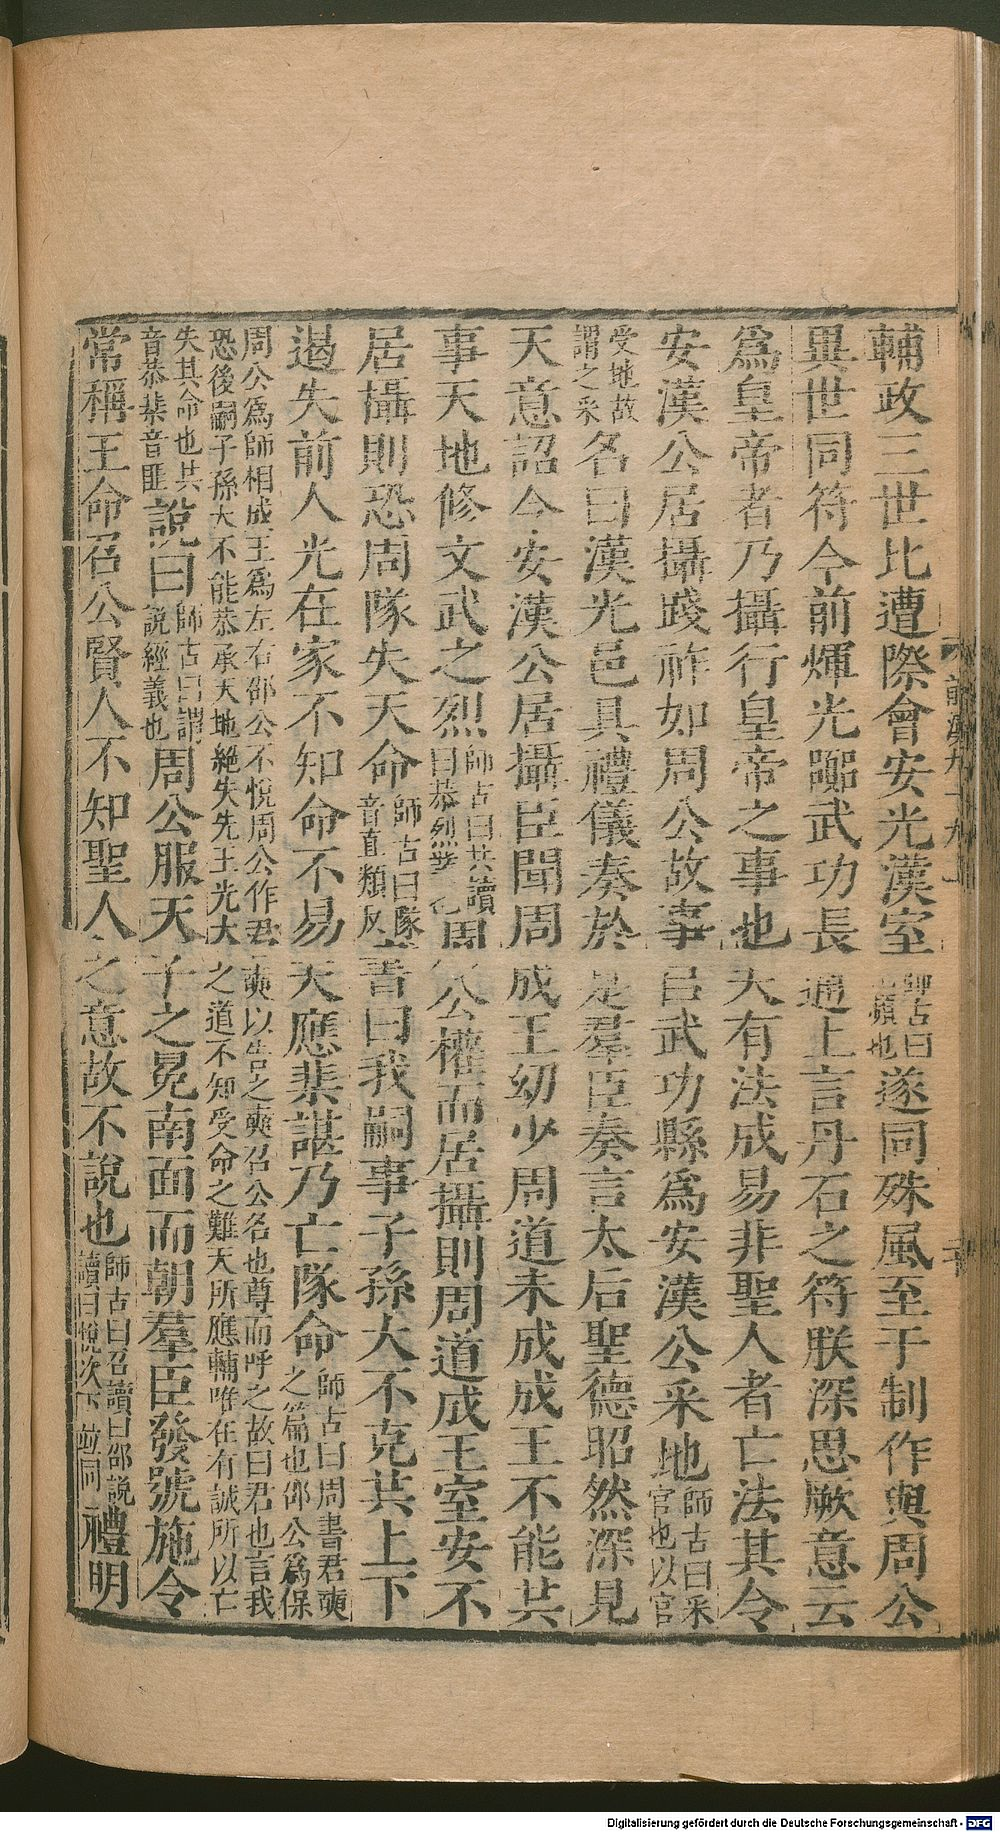 輔政三世比遭際會安光漢室師古曰比頻也遂同殊風至于制作與周公
異世同符今前煇光嚻武功長通上言丹石之符朕深思厥意云
爲皇帝者乃攝行皇帝之事也夫有法成易非聖人者亡法其令
安漢公居攝踐祚如周公故事以武功縣爲安漢公采地師古曰采官也以官
受地故謂之采名曰漢光邑具禮儀奏於是羣臣奏言太后聖德昭然深見
天意詔令安漢公居攝臣聞周成王幼少周道未成成王不能共
事天地修文武之烈師古曰共讀曰恭烈業也周公權而居攝則周道成王室安不
居攝則恐周隊失天命師古曰隊音直類反書曰我嗣事子孫大不克共上下
遏失前人光在家不知命不易天應棐諶乃亡隊命師古曰周書君奭之篇也邵公爲保
周公爲師相成王爲左右邵公不悅周公作君奭以告之奭召公名也尊而呼之故曰君也言我
恐後嗣子孫大不能恭承天地絶失先王光大之道不知受命之難天所應輔唯在有誠所以亡
失其命也共音恭棐音匪說曰師古曰謂說經義也周公服天子之冕南面而朝羣臣發號施令
常稱王命召公賢人不知聖人之意故不說也師古曰召讀曰邵說讀曰悅次下並同禮明
前漢九十九上
Digitalisierung gefördert durch die Deutsche Forschungsgemeinschaft - DFG